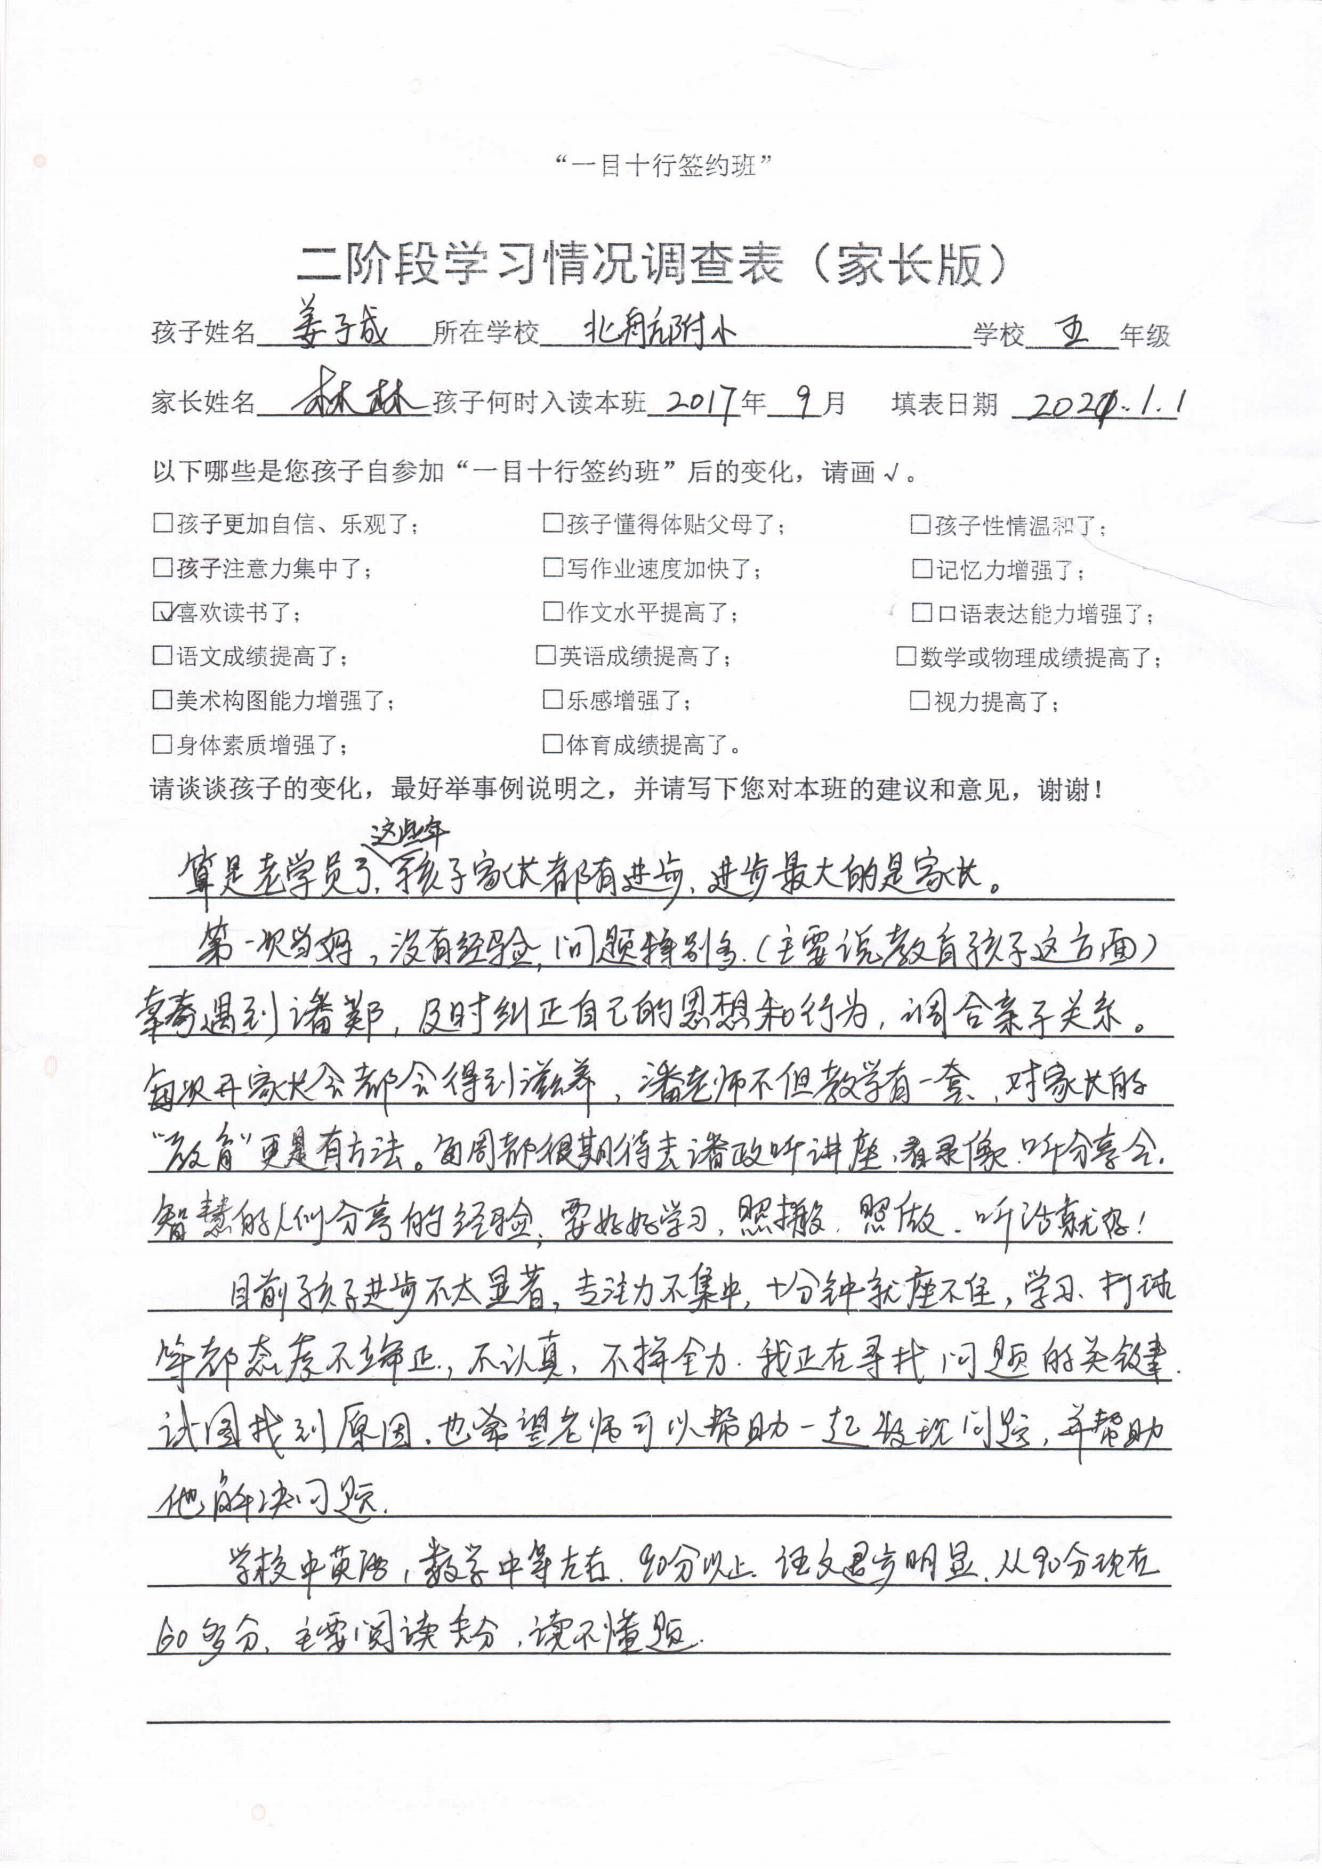 “一目十行签约班”
二阶段学习情况调查表（家长版）
孩子姓名 姜子成 所在学校 北航附小 学校 五 年级
家长姓名 林林 孩子何时入读本班 2017年 9月 填表日期 2021.1.1
以下哪些是您孩子自参加“一目十行签约班”后的变化，请画√。
□孩子更加自信、乐观了； □孩子懂得体贴父母了； □孩子性情温和了；
□孩子注意力集中了； □写作业速度加快了； □记忆力增强了；
☑喜欢读书了； □作文水平提高了； □口语表达能力增强了；
□语文成绩提高了； □英语成绩提高了； □数学或物理成绩提高了；
□美术构图能力增强了； □乐感增强了； □视力提高了；
□身体素质增强了； □体育成绩提高了。
请谈谈孩子的变化，最好举事例说明之，并请写下您对本班的建议和意见，谢谢！
这些年
算是老学员了，孩子家长都有进步，进步最大的是家长。
第一次当妈，没有经验，问题特别多.（主要说教育孩子这方面）
幸亏遇到潘郑，及时纠正自己的思想和行为，调合亲子关系。
每次开家长会都会得到滋养，潘老师不但教学有一套、对家长的
“教育”更是有方法。每周都很期待去潘政听讲座、看录像.听分享会.
智慧的人们分享的经验，要好好学习，照搬.照做.听话就好！
目前孩子进步不太显著，专注力不集中，十分钟就座不住，学习、打球
等都态度不端正，不认真，不拼全力.我正在寻找问题的关键.
试图找到原因.也希望老师可以帮助一起发现问题，并帮助
他解决问题.
学校中英语，数学中等左右.90分以上.语文退步明显.从90分现在
60多分，主要阅读丢分，读不懂题.